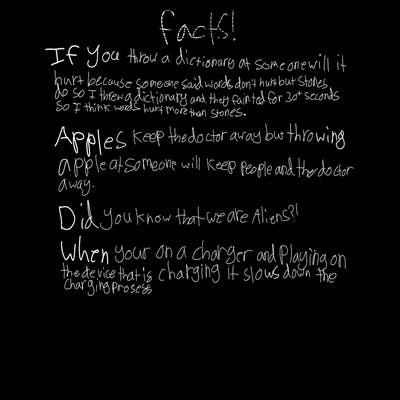 facts!
If you throw a dictionary at someone will it
hurt because someone said words don't hurt but stones
do so I threw a dictionary and they fainted for 30+ seconds
so I think words hurt more than stones.
Apples keep the doctor away but throwing
apple at someone will keep people and the doctor
away.
Did you know that we are Aliens?!
When your on a charger and playing on
the device that is charging it slows down the
charging prosess